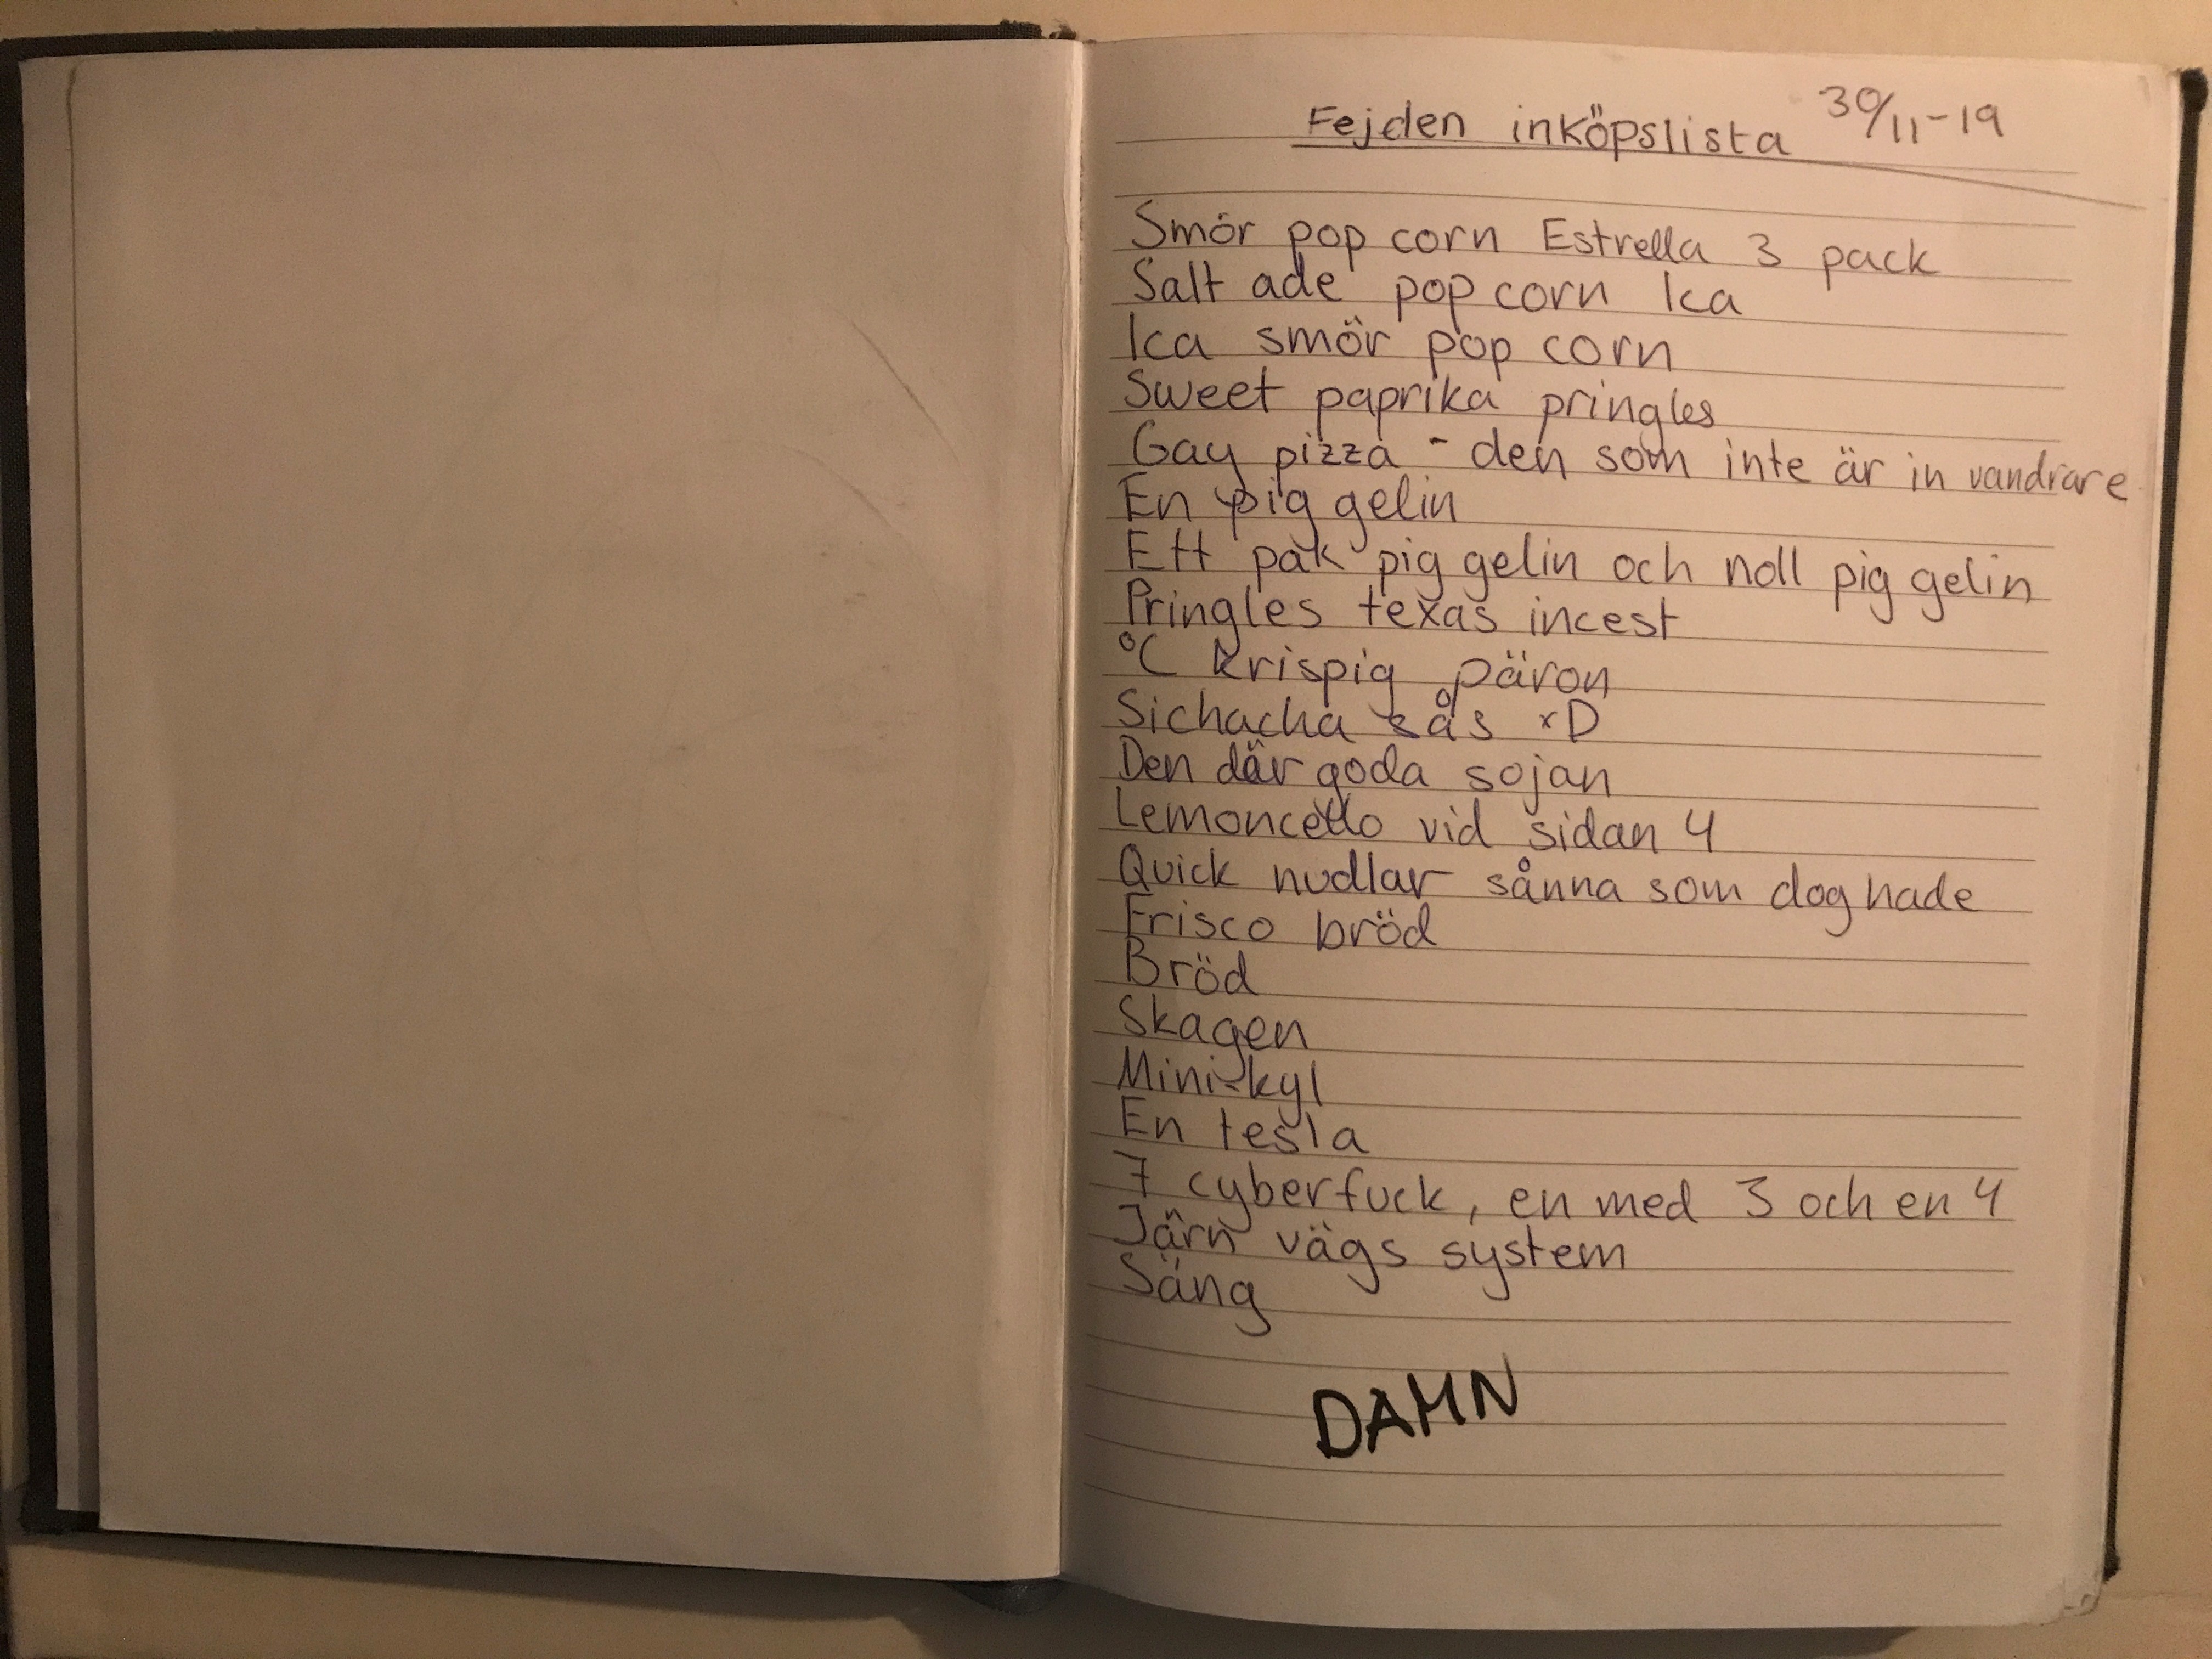 Fejden inköpslista 30/11-19
Smör pop corn Estrella 3 pack
Salt ade pop corn Ica
Ica smör pop corn
Sweet paprika pringles
Gay pizza - den som inte är in vandrare
En pig gelin
Ett pak pig gelin och noll pig gelin
Pringles texas incest
°C krispig päron
Sichacha sås xD
Den där goda sojan
Lemoncello vid sidan 4
Quick nudlar sånna som dog hade
Frisco bröd
Bröd
Skagen
Mini-kyl
En tesla
7 cyberfuck, en med 3 och en 4
Järn vägs system
Säng
DAMN